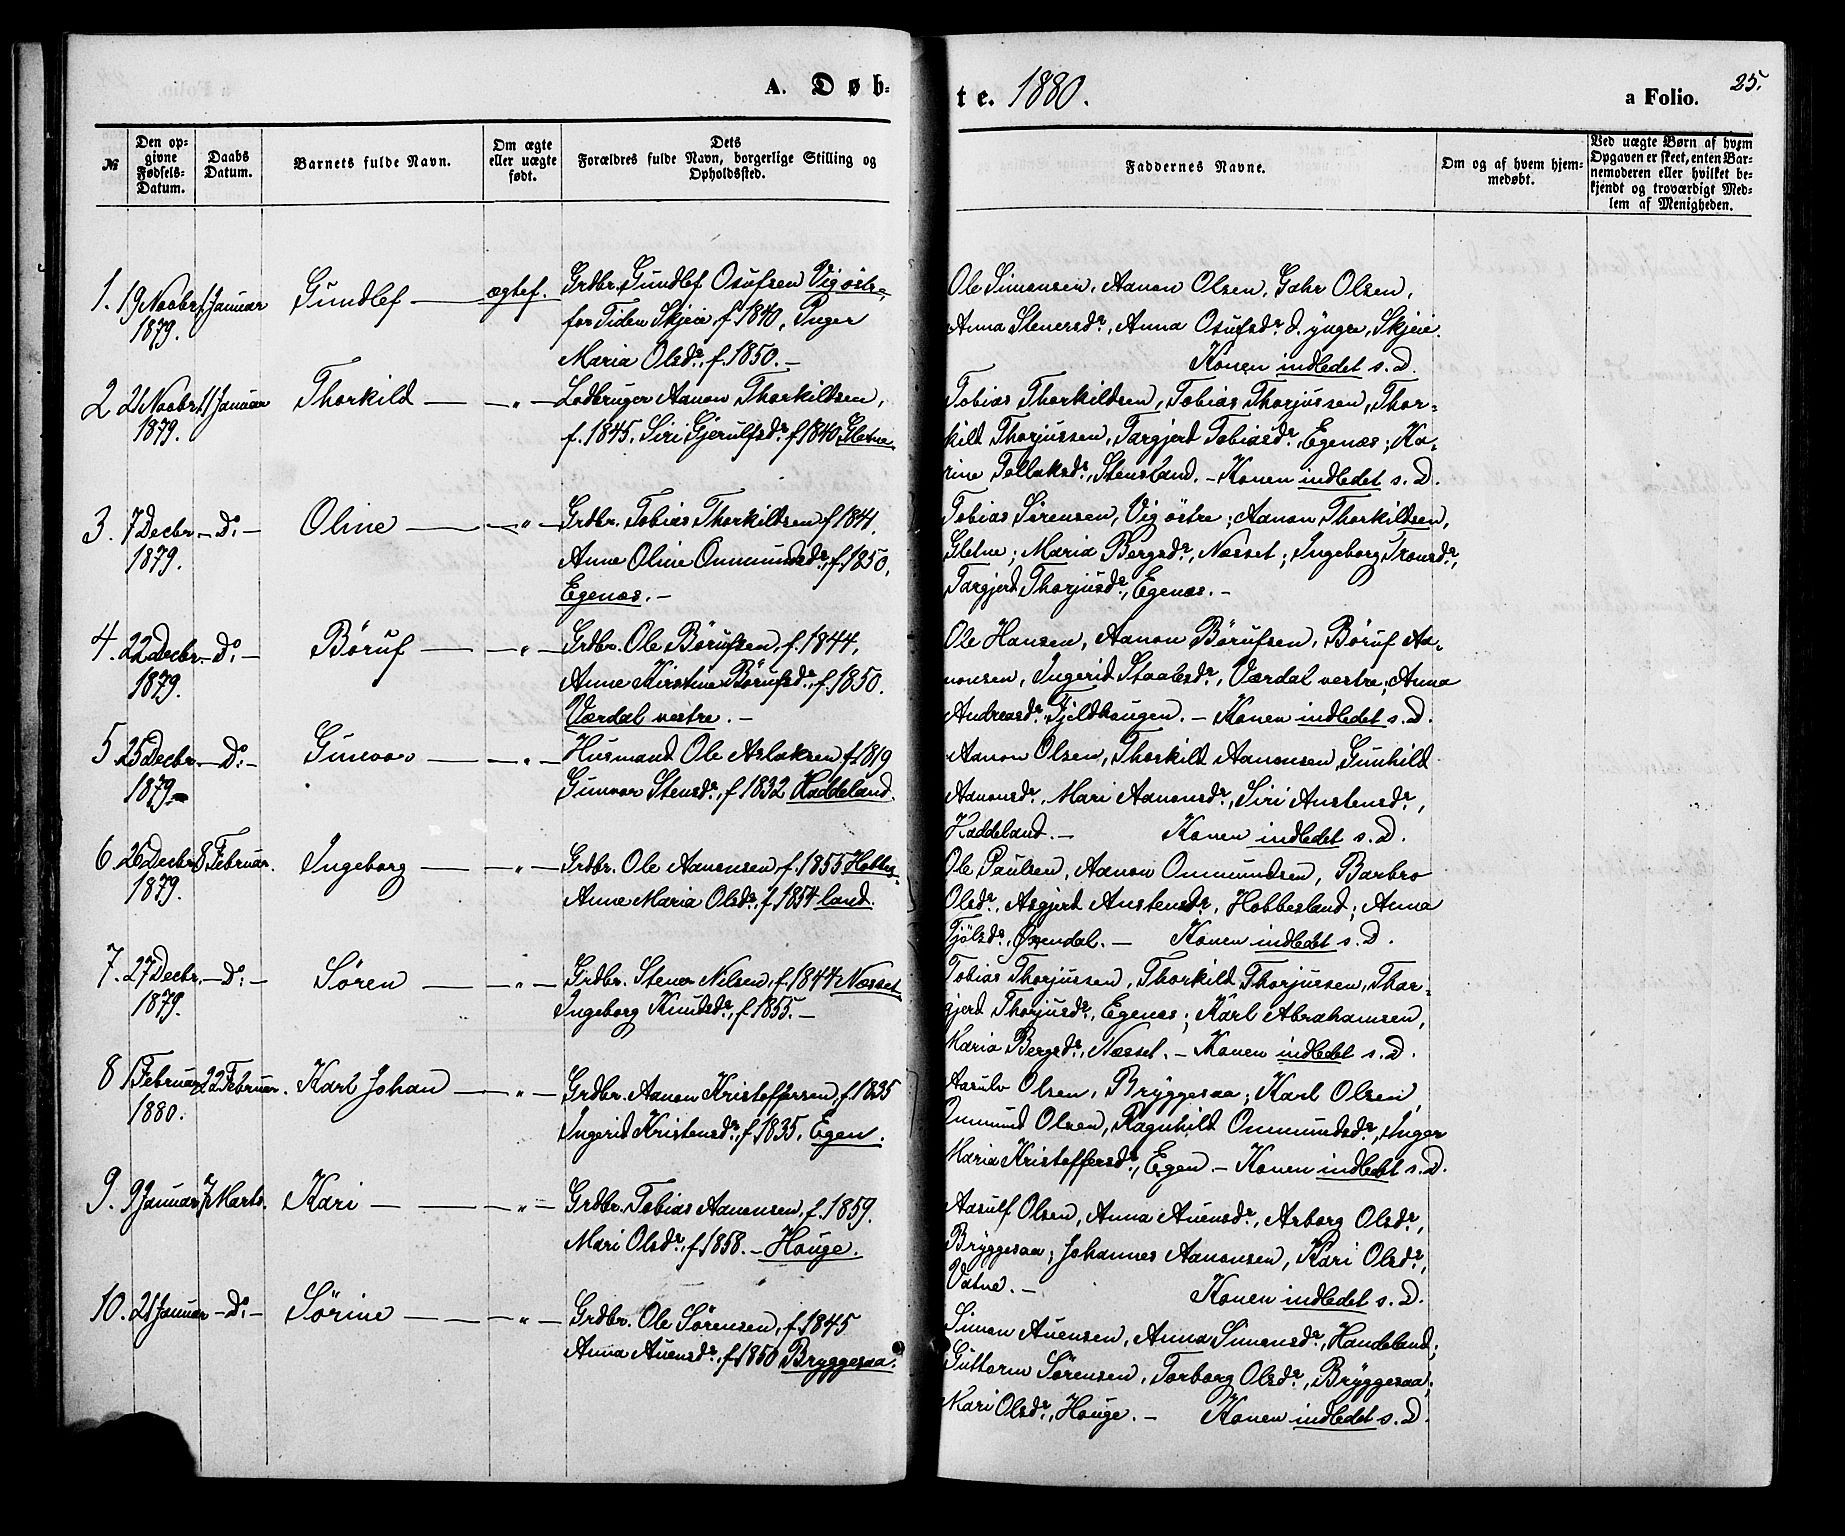 A. Døb-
te. 1880.
a Folio.
25.
№
Den op-
givne
Fødsels-
Datum.
Daabs
Datum.
Barnets fulde Navn.
Om ægte
eller uægte
født.
Dets
Forældres fulde Navn, borgerlige Stilling og
Opholdssted.
Faddernes Navne.
Om og af hvem hjem-
medøbt.
Ved uægte Børn af hvem
Opgaven er skeet, enten Bar-
nemoderen eller hvilket be-
kjendt og troværdigt Med-
lem af Menigheden.
1. 19 Novbr. 1 Januar Gundlef — ægtef. Grdbr. Gundlef Osufsen Vig østre,
1879. for Tiden Skjeie, f. 1840, Inger
Maria Olsdr., f. 1850. —
Ole Simonsen, Aanon Olsen, Gahr Olsen,
Anna Stenersdr., Anna Osufsdr. d. yngre, Skjeie.
Konen indledet s. D.
2 21 Novbr. 11 Januar Thorkild — — " — Lodbruger Aanon Thorkildsen,
1879. f. 1845. Siri Gjerulfsdr. f. 1840, Gletne
Tobias Thorkildsen, Tobias Thorjussen, Thor-
kild Thorjussen, Targjerd Tobiasdr., Egenæs; Ka-
rine Tellaksdr., Stensland. — Konen indledet s. D.
3. 7 Decbr. — Do. — Oline — — " — Grdbr. Tobias Thorkildsen f. 1844.
1879. Anne Oline Ommundsdr., f. 1850,
Egenæs. —
Tobias Sörensen, Vig östre; Aanon Thorkildsen,
Gletne; Maria Bergsdr., Næsset; Ingeborg Tronsdr.,
Targjerd Thorjusdr., Egenæs. —
4. 22 Decbr. — Do. — Böruf — — " — Grdbr. Ole Börufsen, f. 1844,
1879. Anne Kirstine Börufsdr., f. 1850.
Værdal vestre. —
Ole Hansen, Aanon Börufsen, Böruf Aa-
nonsen, Ingerid Staalesdr., Værdal vestre; Anna
Andreasdr. Fjeldhaugen. — Konen indledet s. D.
5 25 Decbr. — Do. — Gunvor — — " — Husmand Ole Aslaksen f. 1819
1879. Gunvor Stensdr., f. 1832 Haddeland.
Aanon Olsen, Thorkild Aanonsen, Gunhild
Aanonsdr., Mari Aanonsdr., Siri Austensdr.,
Haddeland. — Konen indledet s. D.
6 26 Decbr. 8 Februar. Ingeborg — — " — Grdbr. Ole Aanonsen, f. 1855 Hobbes-
1879. Anne Maria Olsdr., f. 1854 land.
Ole Paulsen, Aanon Ommundsen, Barbro
Olsdr., Asgjerd Austensdr., Hobbesland; Anna
Tjölsdr., Öxendal. — Konen indledet s. D.
7. 27 Decbr. — Do. — Sören — — " — Grdbr. Stener Nilsen, f. 1844 Næsset
1879. Ingeborg Knudsdr., f. 1855. —
Tobias Thorjussen, Thorkild Thorjussen, Thor-
gjerd Thorjusdr., Egenæs; Karl Abrahamsen,
Maria Bergsdr., Næsset. — Konen indledet s. D.
8 1 Februar 22 Februar. Karl Johan — — " — Grdbr. Aanon Kristoffersen, f. 1835
1880. Ingerid Kristensdr., f. 1835, Egen.
Aasulv Olsen, Bryggesaa; Karl Olsen,
Ommund Olsen, Ragnhild Ommundsdr., Inger
Maria Kristoffersdr., Egen — Konen indledet s. D.
9. 9 Januar 7 Marts. Kari — — " — Grdbr. Tobias Aanonsen, f. 1859.
Mari Olsdr., f. 1858. — Houge.
Aasulf Olsen, Anna Auensdr., Arborg Olsdr.,
Bryggesaa; Johannes Aanonsen, Kari Olsdr.,
Vatne. — Konen indledet s. D.
10. 21 Januar — Do. — Sörine — — " — Grdbr. Ole Sörensen, f. 1845
Anna Auensdr., f. 1850 Bryggesaa.
Simon Auensen, Anna Simonsdr., Handeland;
Guttorm Sörensen, Torborg Olsdr., Bryggesaa;
Mari Olsdr., Houge. — Konen indledet s. D.